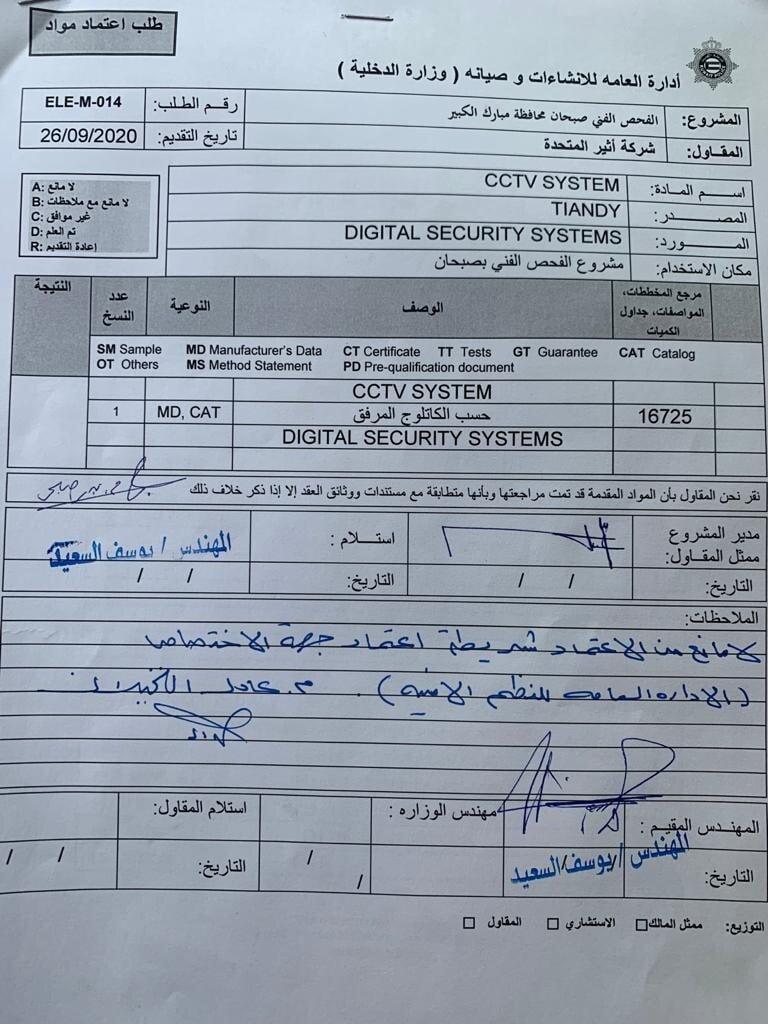 طلب اعتماد مواد
أدارة العامه للانشاءات و صيانه ( وزارة الدخلية )
المشروع: الفحص الفني صبحان محافظة مبارك الكبير
رقم الطلب: ELE-M-014
المقاول: شركة أثير المتحدة
تاريخ التقديم: 26/09/2020
A: لا مانع
B: لا مانع مع ملاحظات
C: غير موافق
D: تم العلم
R: إعادة التقديم
اسم المادة: CCTV SYSTEM
المصدر: TIANDY
المورد: DIGITAL SECURITY SYSTEMS
مكان الاستخدام: مشروع الفحص الفني بصبحان
مرجع المخططات، المواصفات، جداول الكميات
الوصف
النوعية
عدد النسخ
النتيجة
SM Sample MD Manufacturer's Data CT Certificate TT Tests GT Guarantee CAT Catalog
OT Others MS Method Statement PD Pre-qualification document
CCTV SYSTEM
16725 حسب الكاتلوج المرفق MD, CAT 1
DIGITAL SECURITY SYSTEMS
نقر نحن المقاول بأن المواد المقدمة قد تمت مراجعتها وبأنها متطابقة مع مستندات ووثائق العقد إلا إذا ذكر خلاف ذلك
مدير المشروع
ممثل المقاول:
استلام : المهندس / يوسف السعيد
التاريخ: / /
التاريخ: / /
الملاحظات:
لا مانع من الاعتماد شريطة اعتماد جهة الاختصاص
(الادارة العامه للنظم الامنيه) . م. عادل
المهندس المقيم :
مهندس الوزاره :
استلام المقاول:
المهندس / يوسف السعيد
التاريخ:
/ /
التاريخ: / /
التوزيع: ممثل المالك الاستشاري المقاول